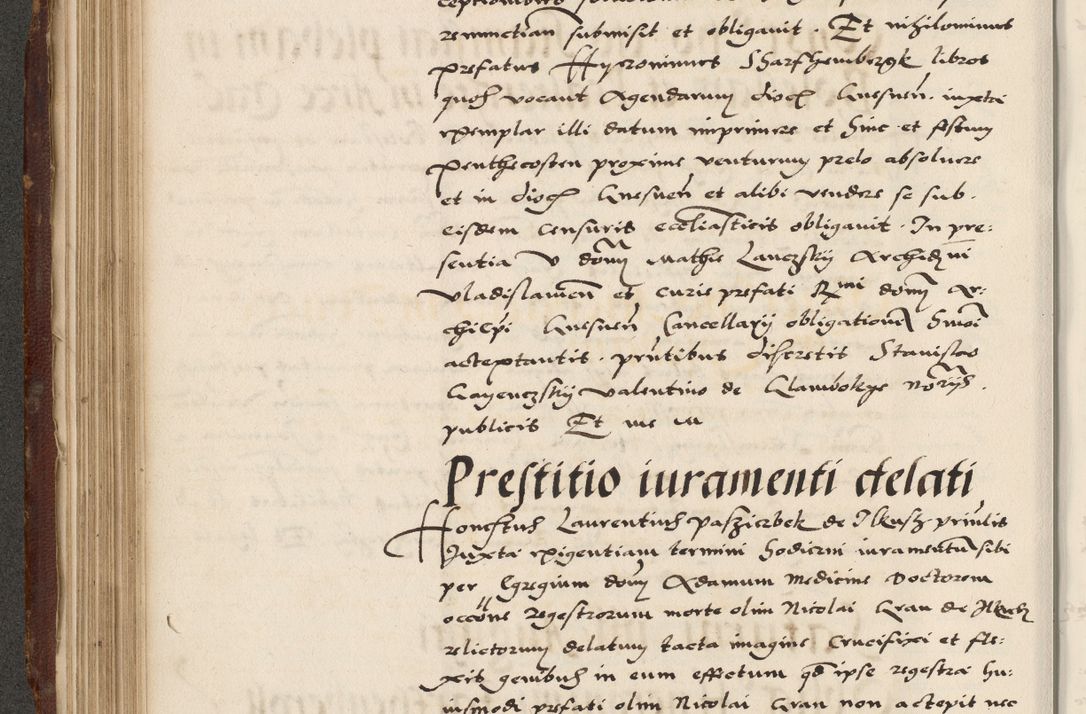 renunctian submisit et obligavit. Et nihilominus
prefatus Hyeronimus Sharfhembergk libros
quos vocant Agendarum dioc Gnesnen. iuxta
exemplar illi datum imprimere et hinc et festum
penthecosten proxime venturum prelo absolvere
et in dioc Gnesnen et alibi vendere se sub
eisdem censuris ecclesiasticis obligavit. In pre:
sentia v domi Mathie Lanczskij Archidni
vladislauien et curie prefati Rmi domi Ar:
chiepi Gnesnen Cancellarij obligationem
acceptantis. presentibus discretis Stanislao
Gayenczskij valentino de Glambokye notrijs.
publicis Et me
Prestitio iuramenti delati
Honestus Laurentius paszierbek de Ilkusz principalis
Juxta exigentiam termini hodierni iuramentum sibi
per Egregium domi Adamum Medicine Doctorem
occone regestrorum morte olim Nicolai Gran de Ilkusz
relictorum delatum tacta imagine Crucifixi et fle:
xis genibus in eum effectum qd ipse regestra hu:
iusmodi prefati olim Nicolai Gran non accepit nec